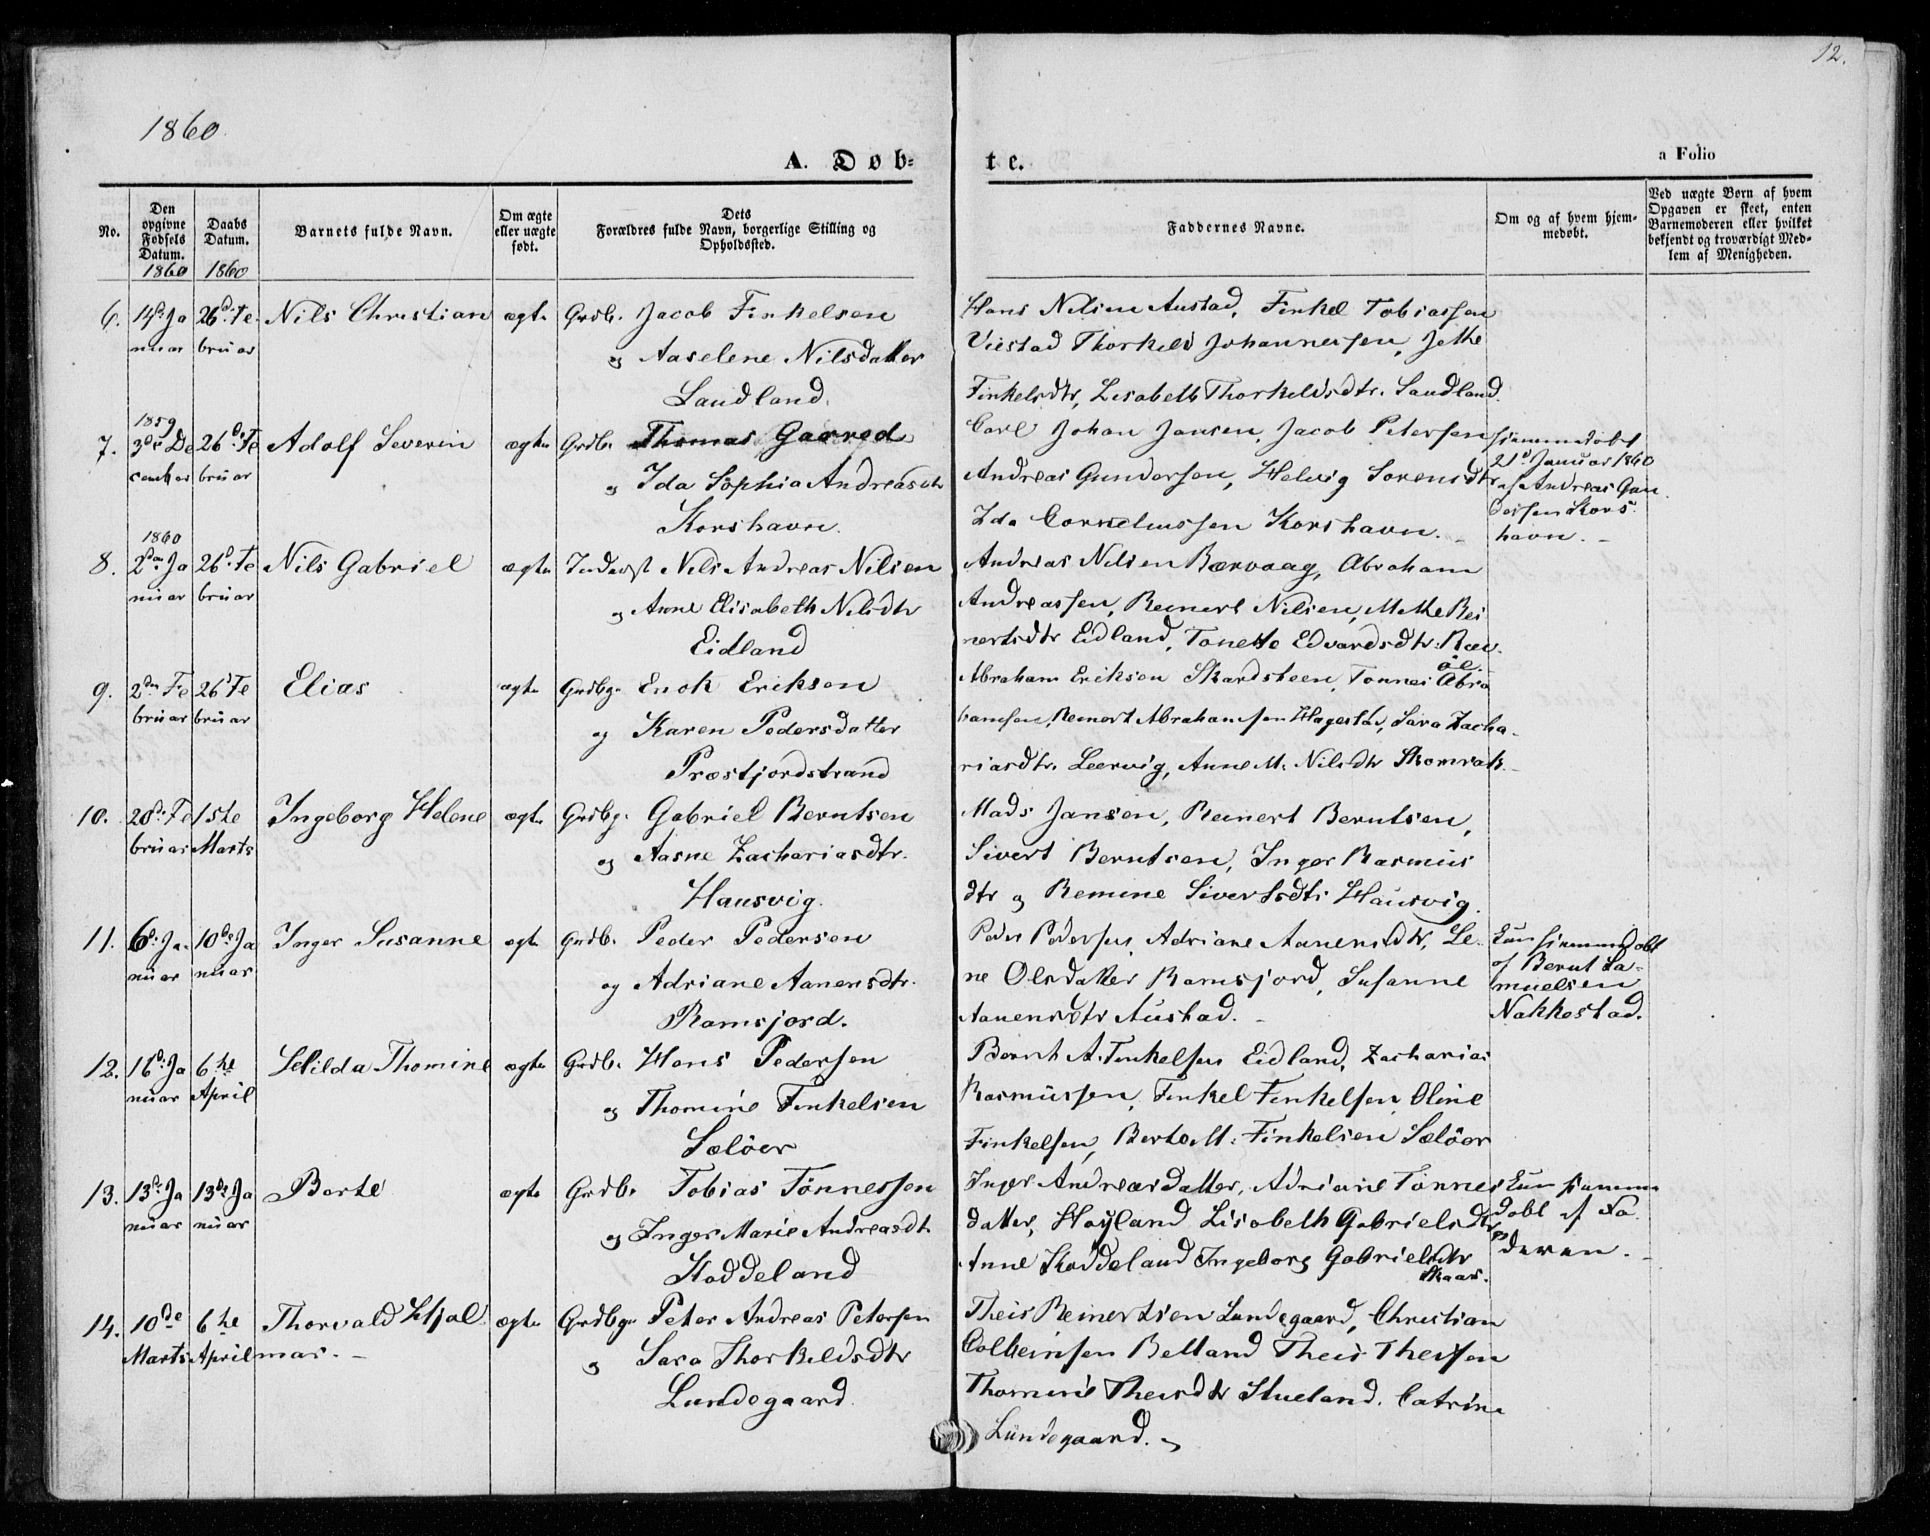 12.
1860.
A. Døb-
te.
a Folio
No.
Den opgivne Fødsels Datum.
1860
Daabs Datum.
1860
Barnets fulde Navn.
Om ægte eller uægte født.
Dets
Forældres fulde Navn, borgerlige Stilling og
Opholdssted.
Faddernes Navne.
Om og af hvem hjem-
medøbt.
Ved uægte Børn af hvem
Opgaven er skeet, enten
Barnemoderen eller hvilket
bekjendt og troværdigt Med-
lem af Menigheden.
6. 14de Ja 26de Fe Nils Christian ægte Grdb. Jacob Finkelsen
nuar bruar og Aaselene Nilsdatter
Sandland.
Hans Nilsen Austad, Finkel Tobiassen
Viestad Thorkild Johannessen, Jethe
Finkelsdtr, Lisabeth Thorkildsdtr. Sandland
1859
7. 3de De 26de Fe Adolf Severin ægte Grdb. Thomas Gaared
cember bruar og Ida Sophia Andreasdtr
Korshavn.
Carl Johan Jansen, Jacob Petersen
Andreas Gundersen, Helvig Sorensdtr
Ida Corneliussen Korshavn.
hjemmedøbt
21d Januar 1860
af Andreas Gun
dersen Kors
havn.
1860
8. 2den Ja 26d Fe Nils Gabriel ægte Inderst Nils Andreas Nilsen
nuar bruar og Anne Elisabeth Nilsdtr
Eidland
Andreas Nilsen Bærvaag, Abraham
Andreassen, Reinert Nilsen, Mette Rei
nertsdtr Eidland, Tonette Edvardsdtr. Ræv
øe.
9. 2den Fe 26d Fe Elias ægte Grdbg. Enok Eriksen
bruar bruar og Karen Pedersdatter
Præstjordstrand
Abraham Eriksen Skardsteen, Tonnes Abra
hamsen, Reinert Abrahamsen Hagestad, Sara Zacha-
riasdtr. Leervig, Anne M. Nilsdtr Skomrak.
10. 28de Fe 1ste Ingeborg Helene ægte Grdbg. Gabriel Berntsen
bruar Marts og Aasne Zachariasdtr.
Hausvig.
Mads Jansen, Reinert Berntsen,
Sivert Berntsen, Inger Rasmus
dtr og Remine Sivertsdtr Hausvig
11. 6de Ja 10de Ja Inger Susanne ægte Grdb. Peder Pedersen
nuar nuar og Adriane Aanensdtr.
Ramsjord.
Peder Pedersen, Adriane Aanensdtr, Le
ne Olsdatter Ramsjord, Susanne
Aanensdtr Austad.
Kun hjemmedøbt
af Bernt Sa-
muelsen
Nakkestad.
12. 16d. Ja 6te Hilda Thomine ægte Grdb. Hans Pedersen
nuar April og Thomine Finkelsen
Sæløer
Bernt A. Finkelsen Eidland, Zacharias
Rasmussen, Finkel Finkelsen, Oline
Finkelsen, Berte M. Finkelsen Sæløer
13. 13de Ja 13de Ja Berte ægte Grdb. Tobias Tønnessen
nuar nuar og Inger Marie Andreasdtr
Koddeland
Inger Andreasdatter, Adriane Tønnes
datter, Høyland Lisabeth Gabrielsdtr
Anne Koddeland Ingeborg Gabrielsdtr
Skaar.
Kun hjemme
døbt af Fa
deren.
14. 10de 6te Thorvald Hjal ægte Grdbg. Peter Andreas Petersen
Marts April mar. og Sara Thorkildsdtr
Lundegaard.
Theis Reinertsen Lundegaard, Christian
Colbeinsen Belland Theis Theisen
Thomine Theisdtr Stueland. Catrine
Lundegaard.